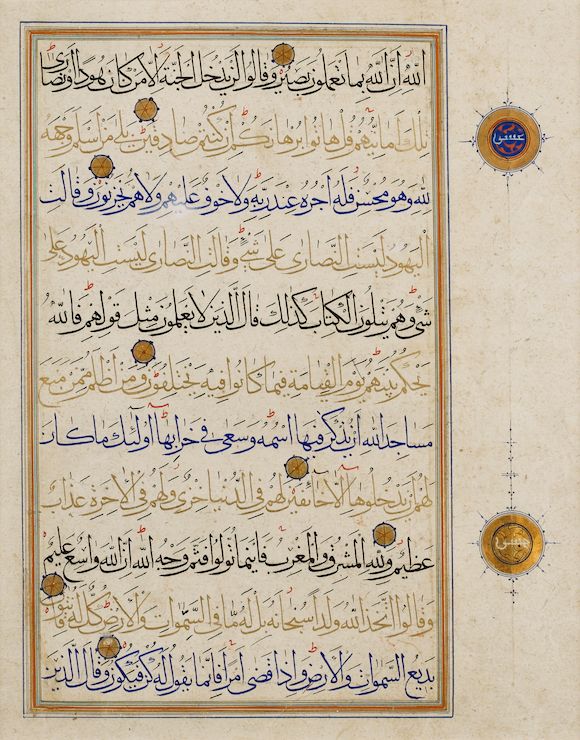 الله ان الله بما تعملون بصير وقالوا لن يدخل الجنة الا من كان هودا او نصارى
تلك امانيهم قل هاتوا برهانكم ان كنتم صادقين بلى من اسلم وجهه
لله وهو محسن فله اجره عند ربه ولا خوف عليهم ولا هم يحزنون وقالت
اليهود ليست النصارى على شئ وقالت النصارى ليست اليهود على
شئ وهم يتلون الكتاب كذلك قال الذين لا يعلمون مثل قولهم فالله
يحكم بينهم يوم القيامة فيما كانوا فيه يختلفون ومن اظلم ممن منع
مساجد الله ان يذكر فيها اسمه وسعى في خرابها اولئك ما كان
لهم ان يدخلوها الا خائفين لهم في الدنيا خزي ولهم في الاخرة عذاب
عظيم ولله المشرق والمغرب فاينما تولوا فثم وجه الله ان الله واسع عليم
وقالوا اتخذ الله ولدا سبحانه بل له ما في السموات والارض كل له قانتون
بديع السموات والارض واذا قضى امرا فانما يقول له كن فيكون وقال الذين